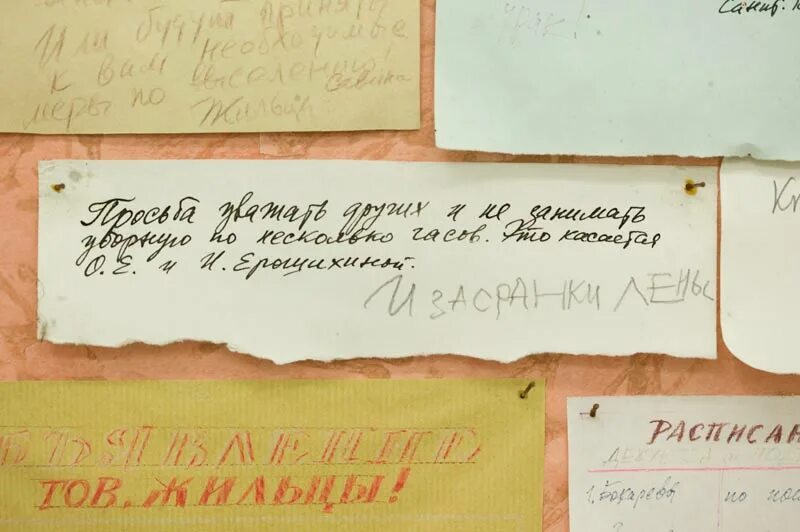 Или будут приняты
необходимые
к вам
меры по выселению!
Жильцы
Санит.
Просьба уважать других и не занимать
уборную по несколько часов. Это касается
О. Е. и И. Ерошихиной.
И ЗАСРАНКИ ЛЕНЫ
ОБЪЯВЛЕНИЕ
ТОВ. ЖИЛЬЦЫ!
РАСПИСАН
1. Бокарева по